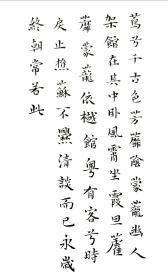 蔦兮千古色芳蘼陰蒙蘢幽人
架館在其中卧風霄坐霞旦藿
蘼蒙蘢依樾館粵有客兮時
戾止樵蘇不爨清談而已永歲
終朝常若此